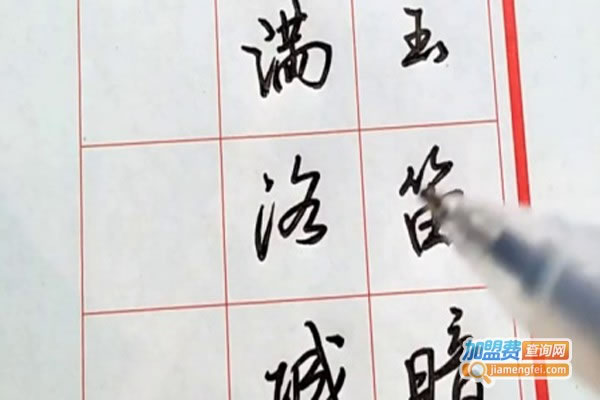 玉笛暗
满洛城
加盟费查询网
jiamengfei.com